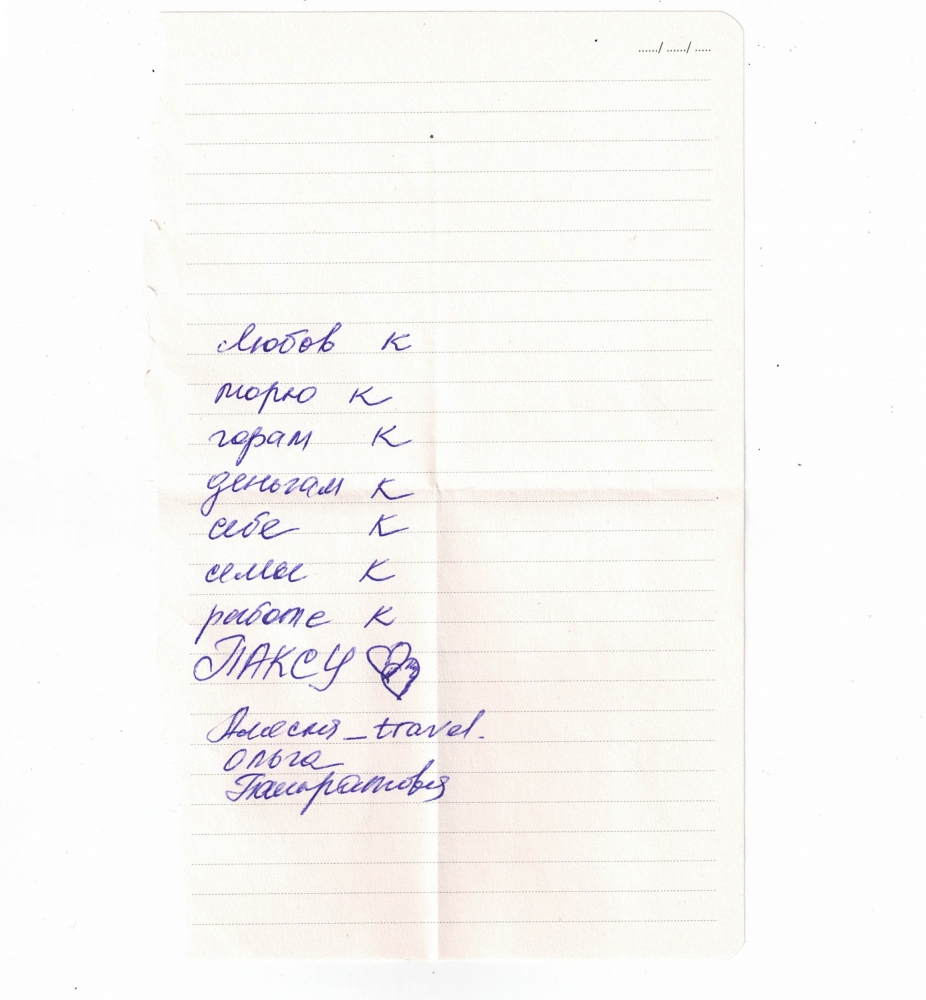 ....../ ....../ .....
Любов к
морю к
горам к
деньгам к
себе к
семье к
работе к
ПАКСУ
Алеся_travel.
Ольга
Панкратова